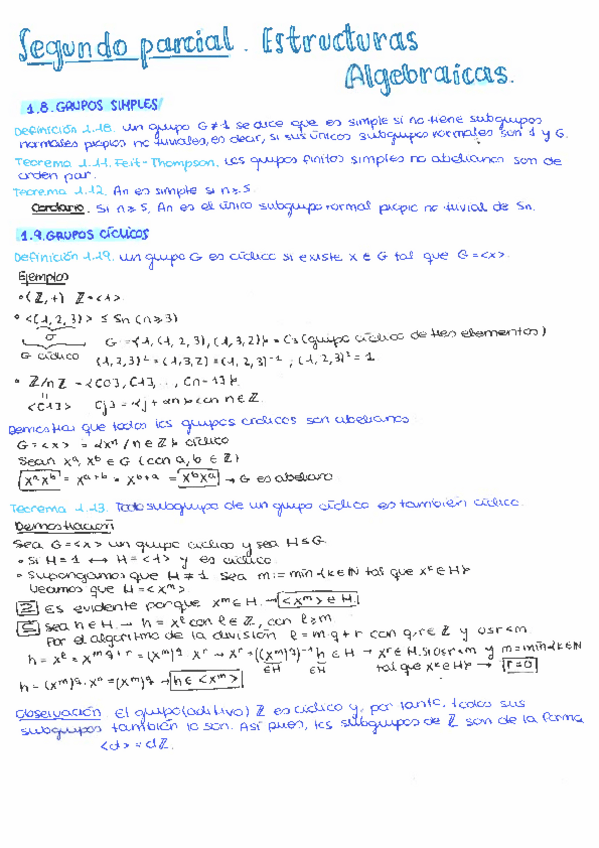 Segundo parcial. Estructuras
Algebraicas.
1.8. GRUPOS SIMPLES
Definición 1.18. Un grupo G ≠ 1 se dice que es simple si no tiene subgrupos
normales propios no triviales, es decir, si sus únicos subgrupos normales son 1 y G.
Teorema 1.11. Feit-Thompson. Los grupos finitos simples no abelianos son de
orden par.
Teorema 1.12. An es simple si n ≥ 5
Corolario. Si n ≥ 5, An es el único subgrupo normal propio no trivial de Sn.
1.9. GRUPOS CÍCLICOS
Definición 1.19. Un grupo G es cíclico si existe x ∈ G tal que G = <x>.
Ejemplos
• (ℤ, +) ℤ = <1>
• <(1, 2, 3)> ≤ Sn (n ≥ 3)
σ
G = {1, (1, 2, 3), (1, 3, 2)} = C3 (grupo cíclico de tres elementos)
G cíclico (1, 2, 3)² = (1, 3, 2) = (1, 2, 3)⁻¹ ; (1, 2, 3)³ = 1
• ℤ/nℤ = {[0], [1], ..., [n-1]}.
"
<[1]> [j] = {j + an} con n ∈ ℤ.
Demostrar que todos los grupos cíclicos son abelianos
G = <x> = {xⁿ / n ∈ ℤ} cíclico
Sean xᵃ, xᵇ ∈ G (con a, b ∈ ℤ)
xᵃxᵇ = xᵃ⁺ᵇ = xᵇ⁺ᵃ = xᵇxᵃ → G es abeliano
Teorema 1.13. Todo subgrupo de un grupo cíclico es también cíclico.
Demostración
Sea G = <x> un grupo cíclico y sea H ≤ G
• Si H = 1 ↔ H = <1> y es cíclico.
• Supongamos que H ≠ 1 Sea m := min {k ∈ ℕ tal que xᵏ ∈ H}
Veamos que H = <xᵐ>
⊇ Es evidente porque xᵐ ∈ H. → <xᵐ> ∈ H.
⊆ Sea h ∈ H → h = xˡ con ℓ ∈ ℤ, con ℓ ≥ m
Por el algoritmo de la división ℓ = mq + r con q, r ∈ ℤ y 0 ≤ r < m
h = xˡ = xᵐq⁺ʳ = (xᵐ)q xʳ → xʳ = ((xᵐ)q)⁻¹ h ∈ H → xʳ ∈ H. Si 0 ≤ r < m y m = min {k ∈ ℕ
∈H ∈H tal que xᵏ ∈ H} → r = 0
h = (xᵐ)q · x⁰ = (xᵐ)q → h ∈ <xᵐ>
Observación El grupo (aditivo) ℤ es cíclico y, por tanto, todos sus
subgrupos también lo son. Así pues, los subgrupos de ℤ son de la forma
<d> = dℤ.